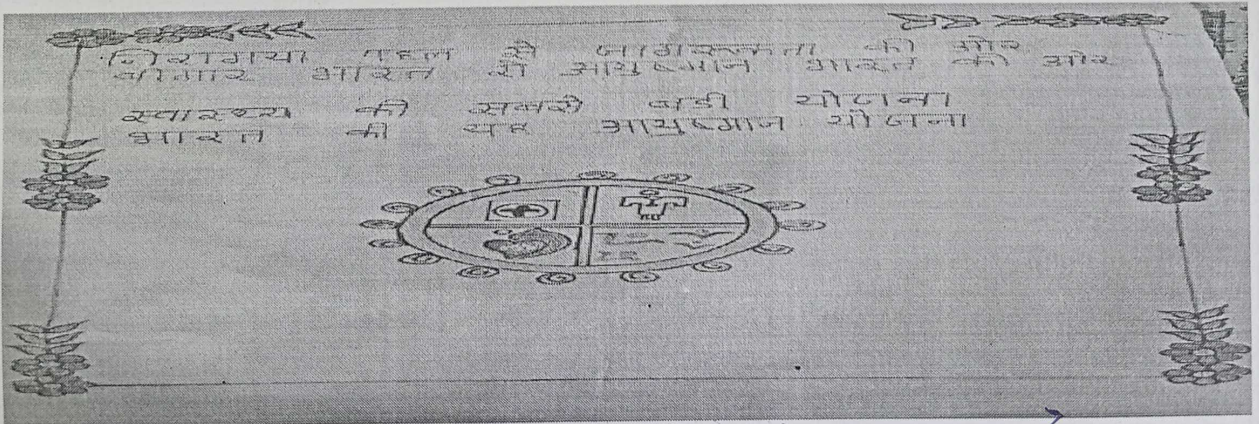 निरामया पहल से जागरूकता की ओर
बीमार भारत से आयुष्मान भारत की ओर
स्वास्थ्य की सबसे बडी योजना
भारत की यह आयुष्मान योजना